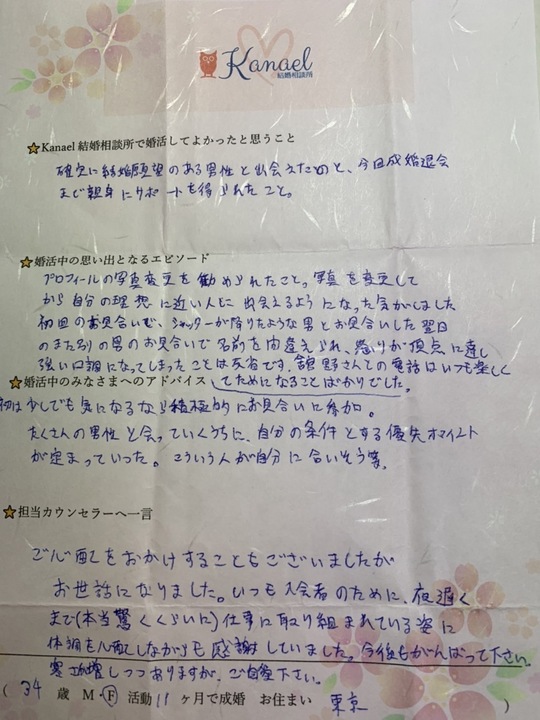 Kanael
結婚相談所
Kanael 結婚相談所で婚活してよかったと思うこと
確実に結婚願望のある男性と出会えたのと、今日成婚退会
まで親身にサポートを得られたこと。
婚活中の思い出となるエピソード
プロフィールの写真変更を勧められたこと。写真を変更して
から自分の理想に近い人とに出会えるようになった気がしました
初回のお見合いで、シャッターが降りたような男とお見合いした翌日
のまた別の男のお見合いで名前を間違えられ、怒りが頂点に達し
強い口調になってしまったことは反省です。舘野さんとの電話はいつも楽しく
婚活中のみなさまへのアドバイス してためになることばかりでした。
初は少しでも気になるなら積極的にお見合いに参加。
たくさんの男性と会っていくうちに、自分の条件とする優先ポイント
が定まっていった。こういう人が自分に合いそう等。
担当カウンセラーへ一言
ご心配をおかけすることもございましたが
お世話になりました。いつも入会者のために、夜遅く
まで(本当驚くくらいに)仕事に取り組まれている姿に
体調を心配しながらも感謝していました。今後もがんばって下さい。
寒さ増しつつありますが、ご自愛下さい。
( 34 歳 M・F 活動 11 ヶ月で成婚 お住まい 東京 )